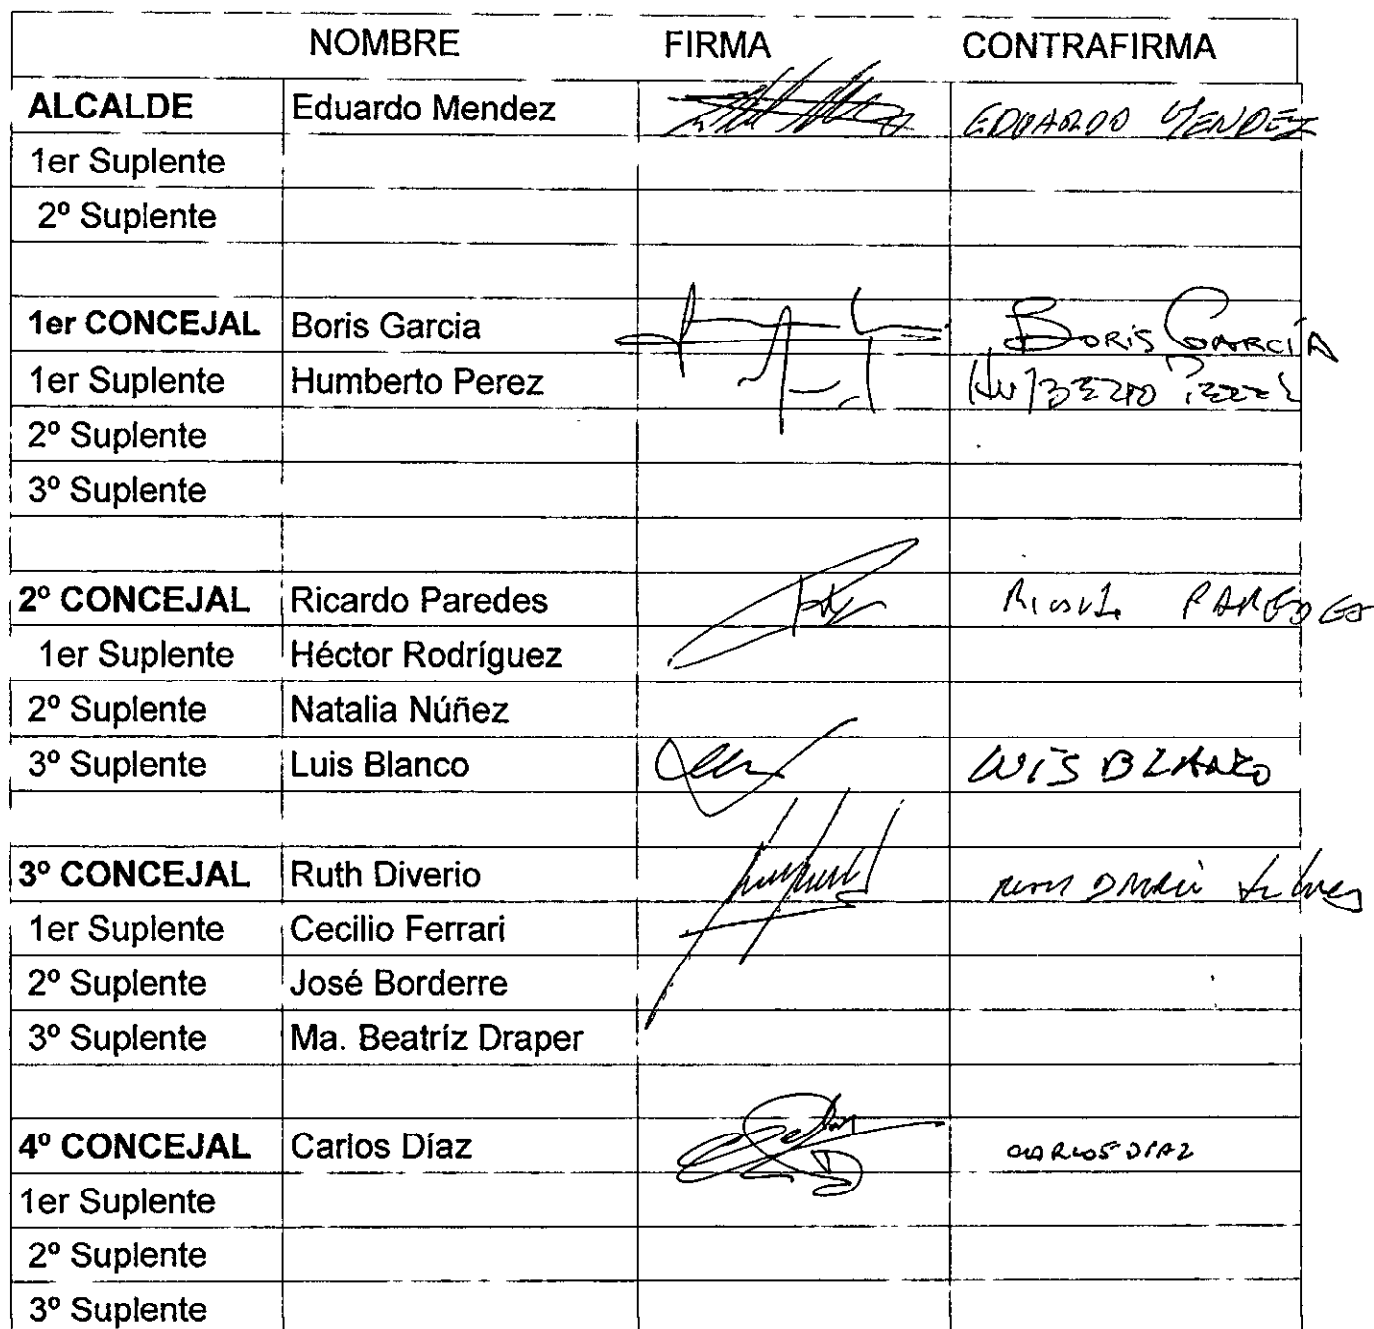 NOMBRE FIRMA CONTRAFIRMA
ALCALDE Eduardo Mendez EDUARDO MENDEZ
1er Suplente
2º Suplente
1er CONCEJAL Boris Garcia BORIS GARCÍA
1er Suplente Humberto Perez
2º Suplente
3º Suplente
2º CONCEJAL Ricardo Paredes PAREDES
1er Suplente Héctor Rodríguez
2º Suplente Natalia Núñez
3º Suplente Luis Blanco LUIS BLANCO
3º CONCEJAL Ruth Diverio
1er Suplente Cecilio Ferrari
2º Suplente José Borderre
3º Suplente Ma. Beatríz Draper
4º CONCEJAL Carlos Díaz CARLOS DIAZ
1er Suplente
2º Suplente
3º Suplente